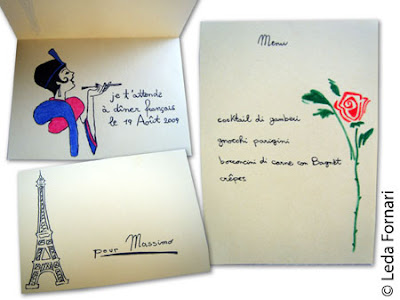 je t'attends
à dîner français
le 19 Août 2009
pour Massimo
Menu
cocktail di gamberi
gnocchi parigini
bocconcini di carne con Bagnèt
crêpes
© Leda Fornari